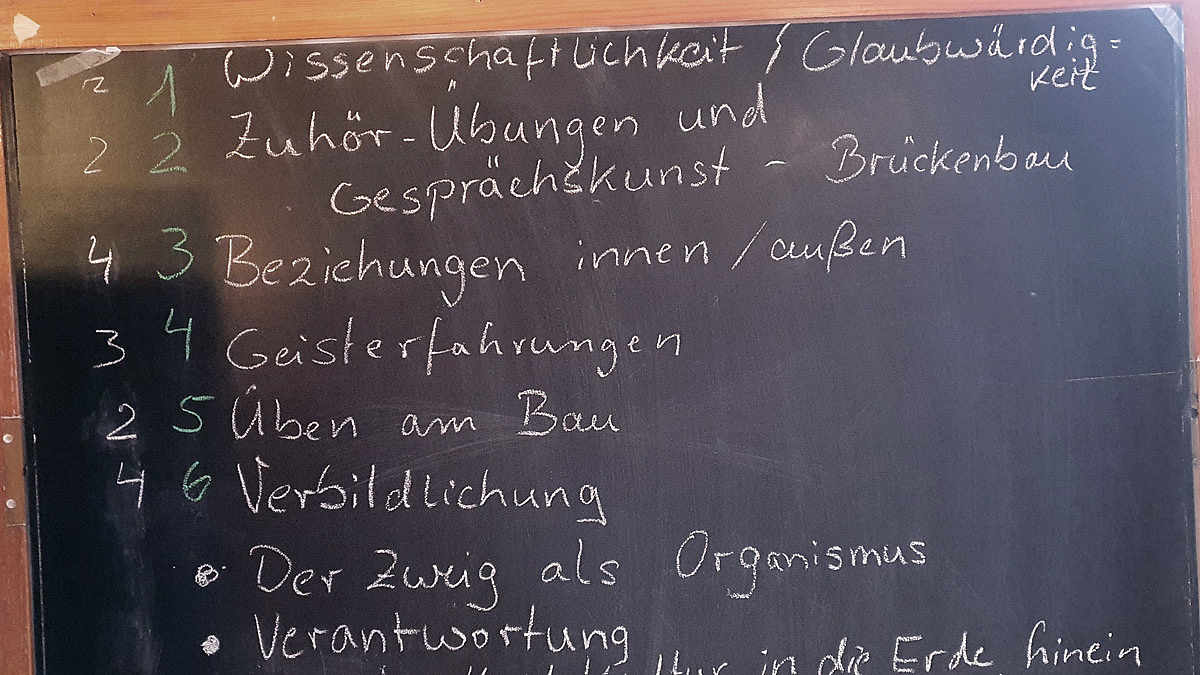 2 1 Wissenschaftlichkeit / Glaubwürdig=
keit
2 2 Zuhör-Übungen und
Gesprächskunst - Brückenbau
4 3 Beziehungen innen / außen
3 4 Geisterfahrungen
2 5 Üben am Bau
4 6 Verbildlichung
• Der Zweig als Organismus
• Verantwortung
in die Erde hinein